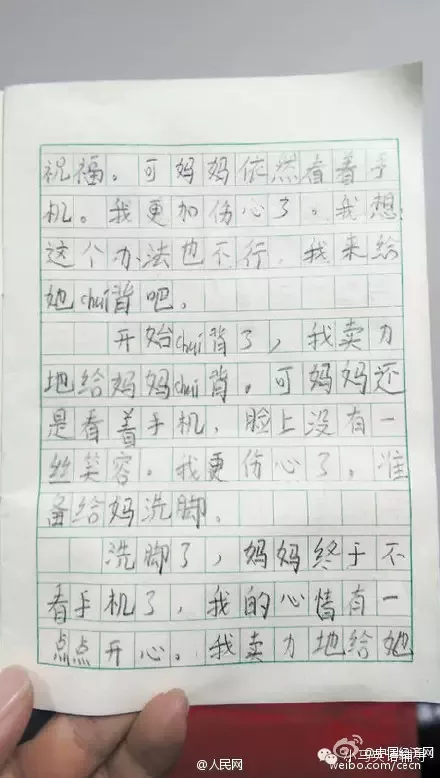 祝福。可妈妈依然看着手
机。我更加伤心了。我想：
这个办法也不行，我来给
她chui背吧。
开始chui背了，我卖力
地给妈妈chui背。可妈妈还
是看着手机，脸上没有一
丝笑容。我更伤心了，准
备给妈洗脚。
洗脚了，妈妈终于不
看手机了，我的心情有一
点点开心。我卖力地给她
@人民网
小马英语辅导
@中国经济网
weibo.com/cecn